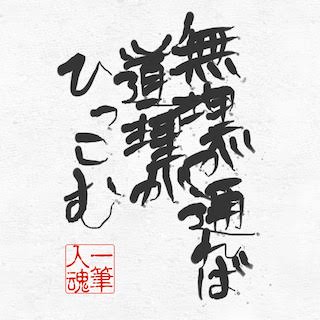 無理が通れば
道理が
ひっこむ
一筆
入魂